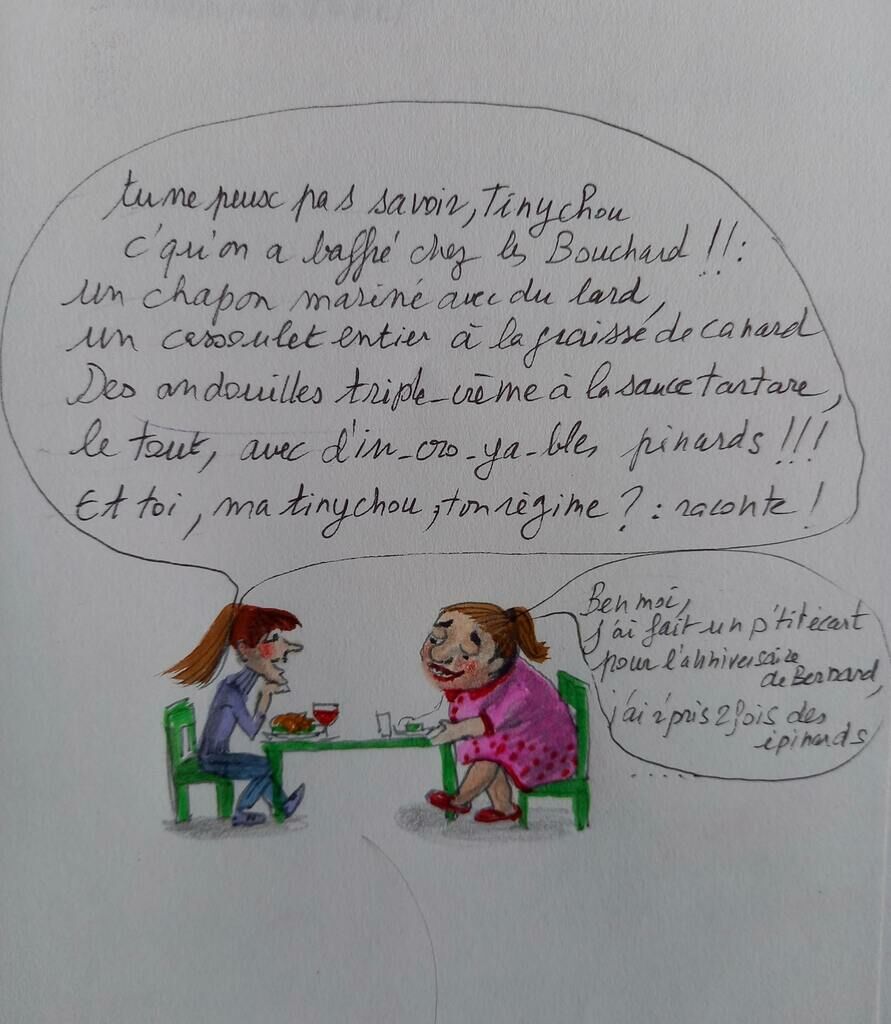 tu ne peux pas savoir, Tinychou
c'qu'on a baffré chez les Bouchard !!:
un chapon mariné avec du lard,
un cassoulet entier à la graisse de canard
Des andouilles triple-crème à la sauce tartare,
le tout, avec d'in-cro-ya-bles pinards !!!
Et toi, ma tinychou, ton régime ? : raconte !
Ben moi,
j'ai fait un p'tit écart
pour l'anniversaire
de Bernard,
j'ai r'pris 2 fois des
épinards
.....